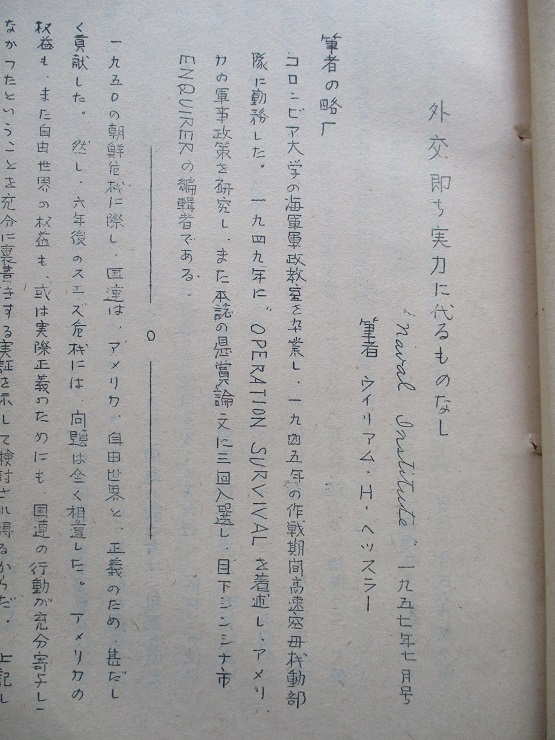 外交即ち実力に代るものなし
"Naval Institute" 一九五七年七月号
筆者 ウイリアム・H・ヘッスラー
筆者の略厂
コロンビア大学の海軍軍政教室を卒業し、一九四五年の作戦期間高速空母機動部
隊に勤務した。一九四九年に"OPERATION SURVIVAL"を著述し、アメリ
カの軍事政策を研究し、また本誌の懸賞論文に三回入選し、目下シンシナ市
ENQUIRERの編輯者である。
一九五〇の朝鮮危機に際し、国連は、アメリカ、自由世界と、正義のため、甚だし
く貢献した。然し、六年後のスエズ危機には、問題は全く相違した。アメリカの
権益も、また自由世界の权益も、或は実際正義のためにも、国連の行動が充分寄与し
なかったということを充分に裏書きする実証を示して検討され得るからだ。上記し